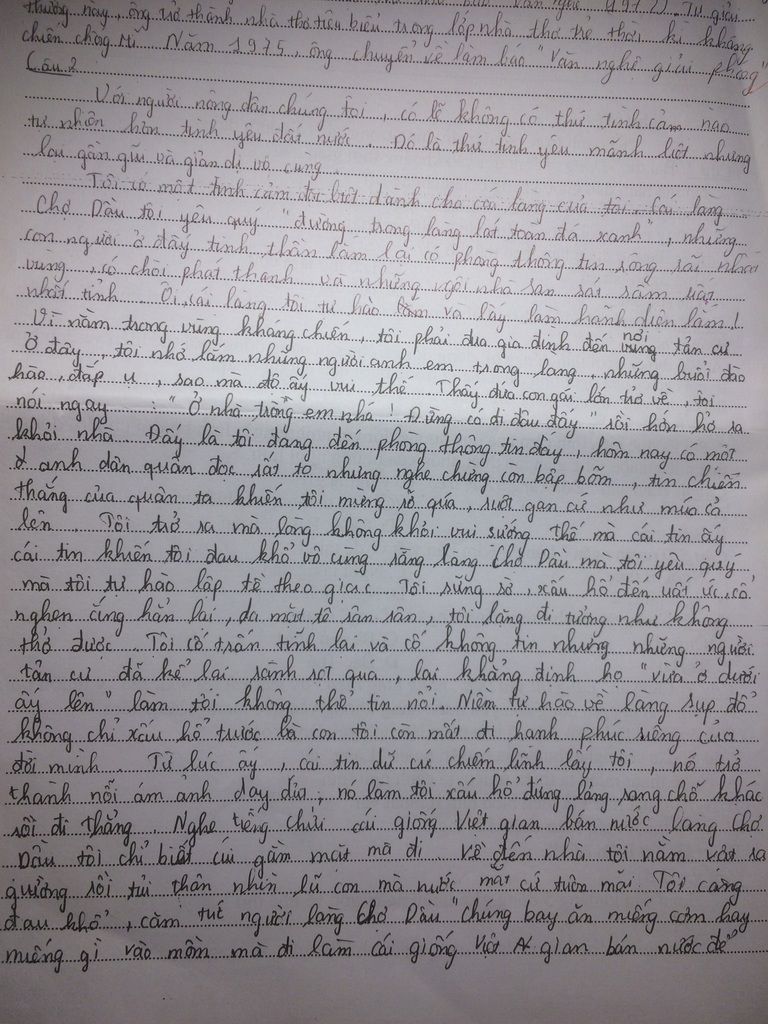 thường này, ông trở thành nhà thơ tiêu biểu trong lớp nhà thơ trẻ thời kì kháng
chiến chống Mĩ. Năm 1975, ông chuyển về làm báo "Văn nghệ giải phóng"
Câu 2
Với người nông dân chúng tôi, có lẽ không có thứ tình cảm nào
tự nhiên hơn tình yêu đất nước. Đó là thứ tình yêu mãnh liệt nhưng
lại gần gũi và giản dị vô cùng.
Tôi có một tình cảm đặc biệt dành cho cái làng của tôi. Cái làng
Chợ Dầu tôi yêu quý "đường trong làng lát toàn đá xanh", những
con người ở đây tinh thần lắm lại có phòng thông tin rộng rãi nhất
vùng, có chòi phát thanh và những ngôi nhà san sát sầm uất
nhất tỉnh. Ôi, cái làng tôi tự hào lắm và lấy làm hãnh diện lắm!
Vì nằm trong vùng kháng chiến, tôi phải đưa gia đình đến nơi tản cư
Ở đây, tôi nhớ lắm những người anh em trong làng, những buổi đào
hào, đắp ụ, sao mà độ ấy vui thế. Thấy đứa con gái lớn trở về, tôi
nói ngay : "Ở nhà trông em nhá! Đừng có đi đâu đấy" rồi hớn hở ra
khỏi nhà. Đấy là tôi đang đến phòng thông tin đấy, hôm nay có một
anh dân quân đọc rất to nhưng nghe chừng còn bập bõm, tin chiến
thắng của quân ta khiến tôi mừng rỡ quá, ruột gan cứ như múa cả
lên. Tôi trở ra mà lòng không khỏi vui sướng thế mà cái tin ấy
cái tin khiến tôi đau khổ vô cùng rằng làng Chợ Dầu mà tôi yêu quý
mà tôi tự hào lập tề theo giặc. Tôi sững sờ, xấu hổ đến uất ức, cổ
nghẹn cứng hẳn lại, da mặt tê rân rân, tôi lặng đi tưởng như không
thở được. Tôi cố trấn tĩnh lại và cố không tin nhưng những người
tản cư đã kể lại rành rọt quá, lại khẳng định họ "vừa ở dưới
ấy lên" làm tôi không thể tin nổi. Niềm tự hào về làng sụp đổ
không chỉ xấu hổ trước bà con tôi còn mất đi hạnh phúc riêng của
đời mình. Từ lúc ấy, cái tin dữ cứ chiếm lĩnh lấy tôi, nó trở
thành nỗi ám ảnh day dứa, nó làm tôi xấu hổ đứng lảng sang chỗ khác
rồi đi thẳng. Nghe tiếng chửi cái giống Việt gian bán nước làng Chợ
Dầu tôi chỉ biết cúi gằm mặt mà đi về đến nhà tôi nằm vật ra
giường rồi tủi thân nhìn lũ con mà nước mắt cứ tuôn mãi. Tôi càng
đau khổ, căm tức người làng Chợ Dầu "chúng bay ăn miếng cơm hay
miếng gì vào mồm mà đi làm cái giống Việt gian bán nước để